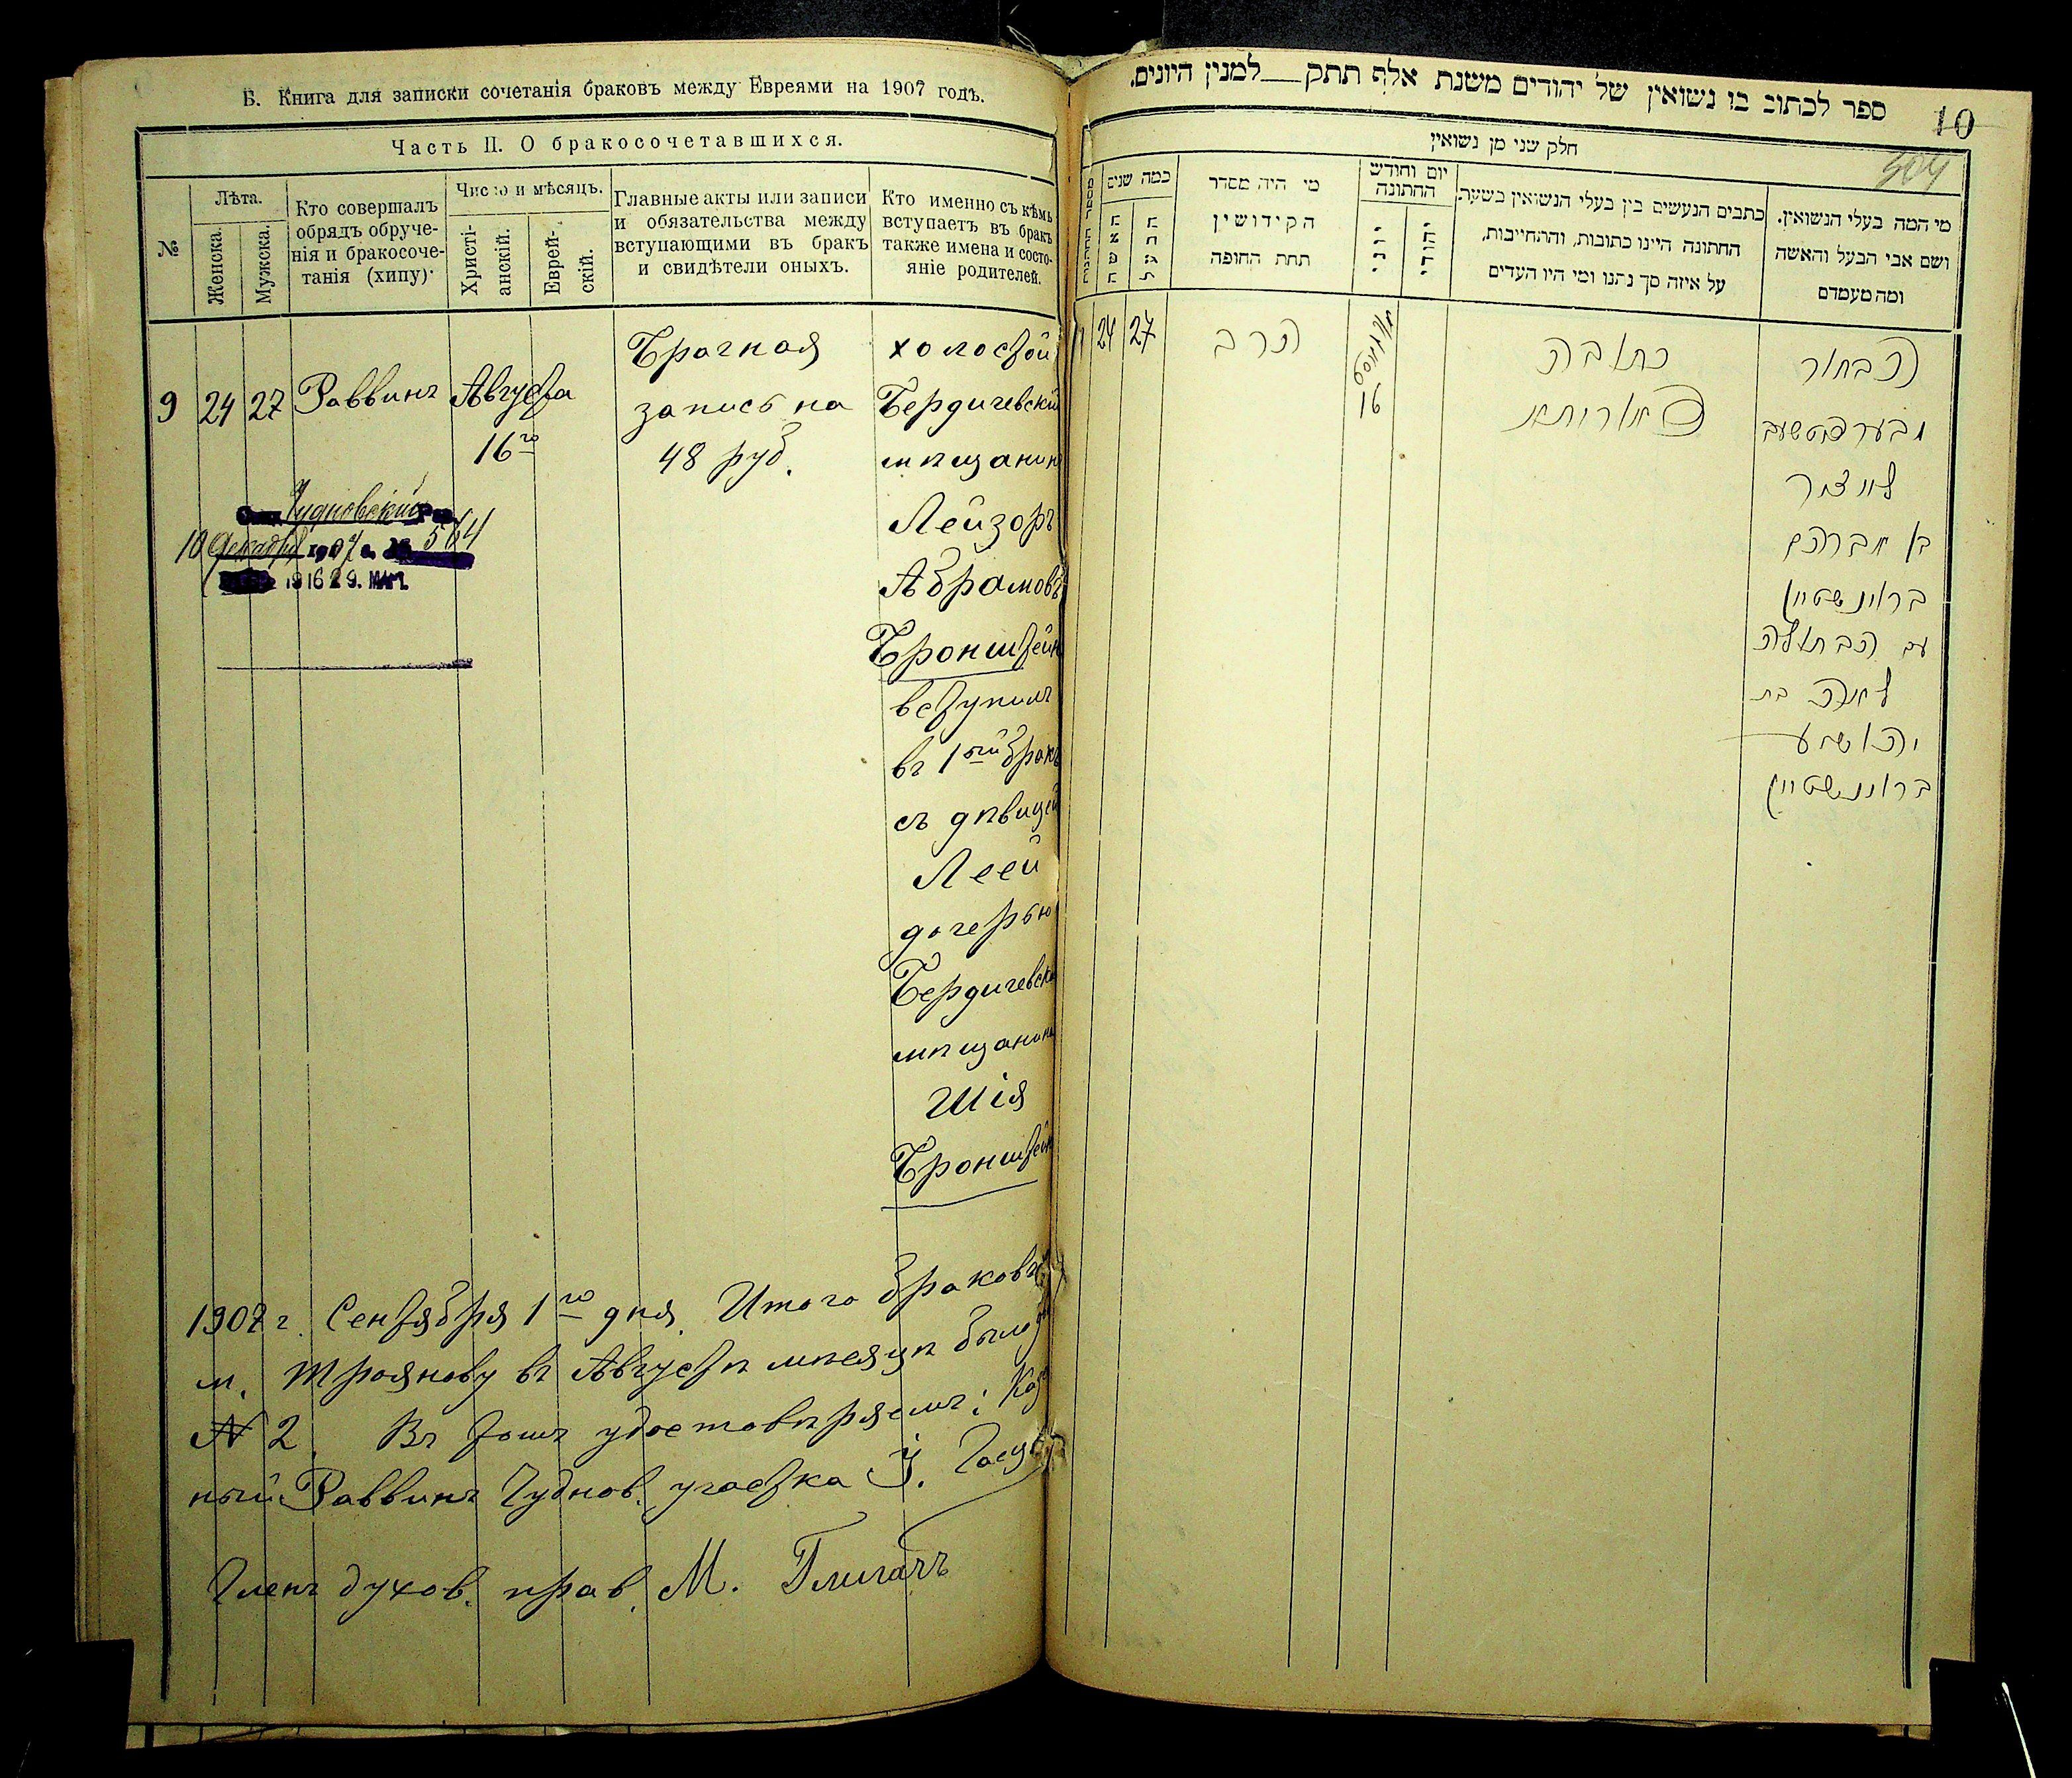 Б. Книга для записки сочетанія браковъ между Евреями на 1907 годъ.
Часть II. О бракосочетавшихся.
№
Лѣта.
Женска.
Мужска.
Кто совершалъ
обрядъ обруче-
нія и бракосоче-
танія (хипу)
Число и мѣсяцъ.
Христі-
анскій.
Еврей-
скій.
Главные акты или записи
и обязательства между
вступающими въ бракъ
и свидѣтели оныхъ.
Кто именно съ кѣмъ
вступаетъ въ бракъ
также имена и состо-
яніе родителей.
9
24
27
Раввинъ
Августа
16го
Брачная
запись на
48 руб.
холостой
Бердичевскій
мѣщанинъ
Лейзоръ
Абрамовъ
Бронштейнъ
вступилъ
въ 1ый бракъ
съ дѣвицей
Леей
дочерью
Бердичевск
мѣщанина
Шія
Бронштейн
Чудновскій
10 Декабря 1907 г. 564
1916 29. МАР.
1907 г. Сентября 1го дня. Итого браковъ
м. Трояново въ Августѣ мѣсяцѣ было
№ 2. Въ томъ удостовѣряемъ: Каз
ный Раввинъ Чуднов. участка
Членъ духов. прав. М.
ספר לכתוב בו נשואין של יהודים משנת אלף תתק — למנין היונים.
10
חלק שני מן נשואין
מספר החתונות
כמה שנים
האשה
הבעל
מי היה מסדר
הקידושין
תחת החופה
יום וחודש
החתונה
יוני
יהודי
כתבים הנעשים בין בעלי הנשואין בשעת
החתונה היינו כתובות, והתחייבות,
על איזה סך נתנו ומי היו העדים
מי המה בעלי הנשואין,
ושם אבי הבעל והאשה
ומה מעמדם
24
27
הרב
אוגוסט
16
כתובה
הבחור
לייזער
בן אברהם
בראנשטיין
עם הבתולה
לאה בת
יהושע
בראנשטיין